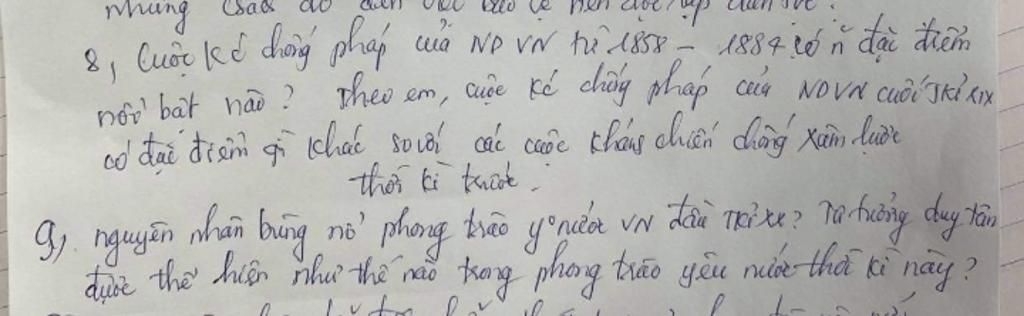 những sai
8, Cuộc K/c chống pháp của ND VN từ 1858 - 1884 có n̄ đặc điểm
nổi bật nào? Theo em, cuộc K/c chống pháp của NDVN cuối TKỉ XIX
có đặc điểm gì khác so với các cuộc kháng chiến chống xâm lược
thời kì trước.
9, nguyên nhân bùng nổ phong trào y° nước VN đầu TKỉ XX? Tư tưởng duy tân
được thể hiện như thế nào trong phong trào yêu nước thời kì này?